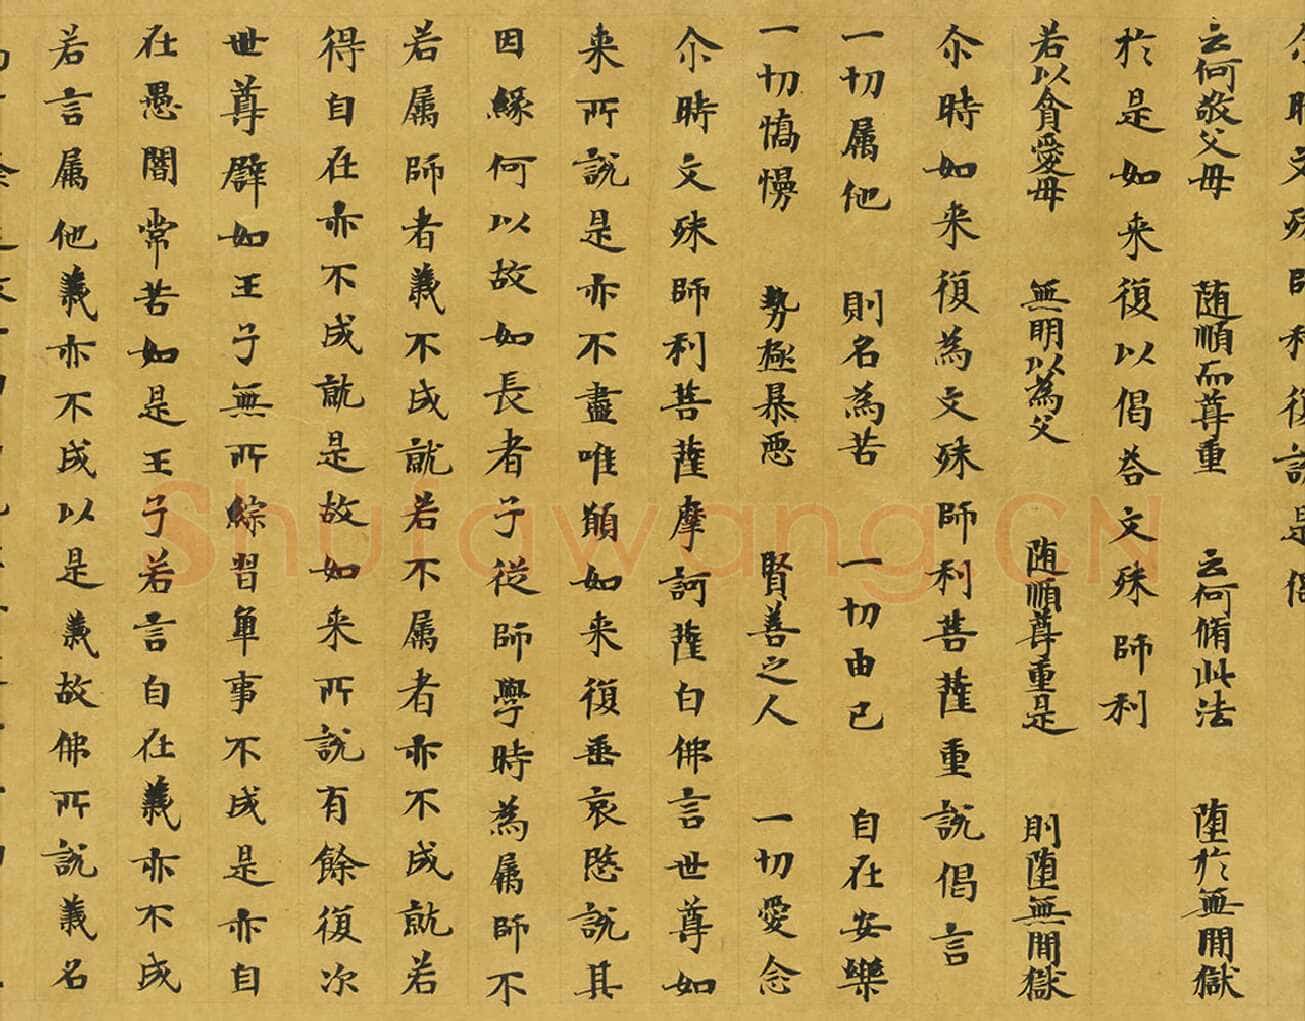 尒時文殊師利復說是偈
云何敬父母 随順而尊重 云何脩此法 墮於無間獄
於是如来復以偈荅文殊師利
若以貪愛母 無明以為父 随順尊重是 則墮無間獄
尒時如来復為文殊師利菩薩重說偈言
一切属他 則名為苦 一切由己 自在安樂
一切憍慢 勢極暴惡 賢善之人 一切愛念
尒時文殊師利菩薩摩訶薩白佛言世尊如
来所說是亦不盡唯願如来復垂哀愍說其
因緣何以故如長者子從師學時為属師不
若属師者義不成就若不属者亦不成就若
得自在亦不成就是故如来所說有餘復次
世尊譬如王子無所綜習觸事不成是亦自
在愚闇常苦如是王子若言自在義亦不成
若言属他義亦不成以是義故佛所說義名
Shufawang.CN